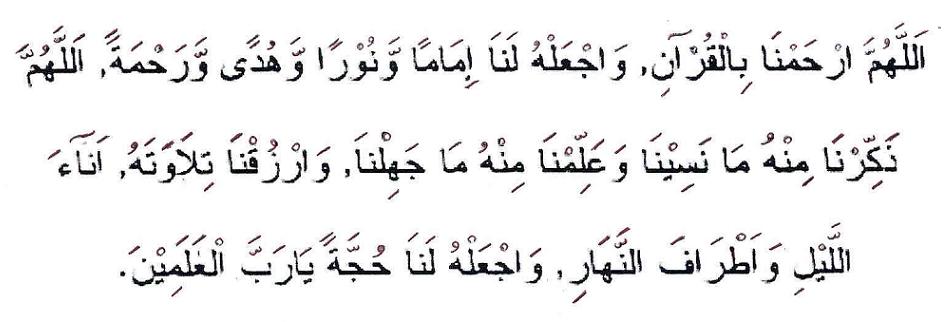 اَللَّهُمَّ ارْحَمْنَا بِالْقُرْآنِ, وَاجْعَلْهُ لَنَا إِمَامًا وَّنُوْرًا وَّهُدًى وَّرَحْمَةً, اَللَّهُمَّ
ذَكِّرْنَا مِنْهُ مَا نَسِيْنَا وَعَلِّمْنَا مِنْهُ مَا جَهِلْنَا, وَارْزُقْنَا تِلَاوَتَهُ, اَنَآءَ
اللَّيْلِ وَاَطْرَافَ النَّهَارِ, وَاجْعَلْهُ لَنَا حُجَّةً يَارَبَّ الْعٰلَمِيْنَ.